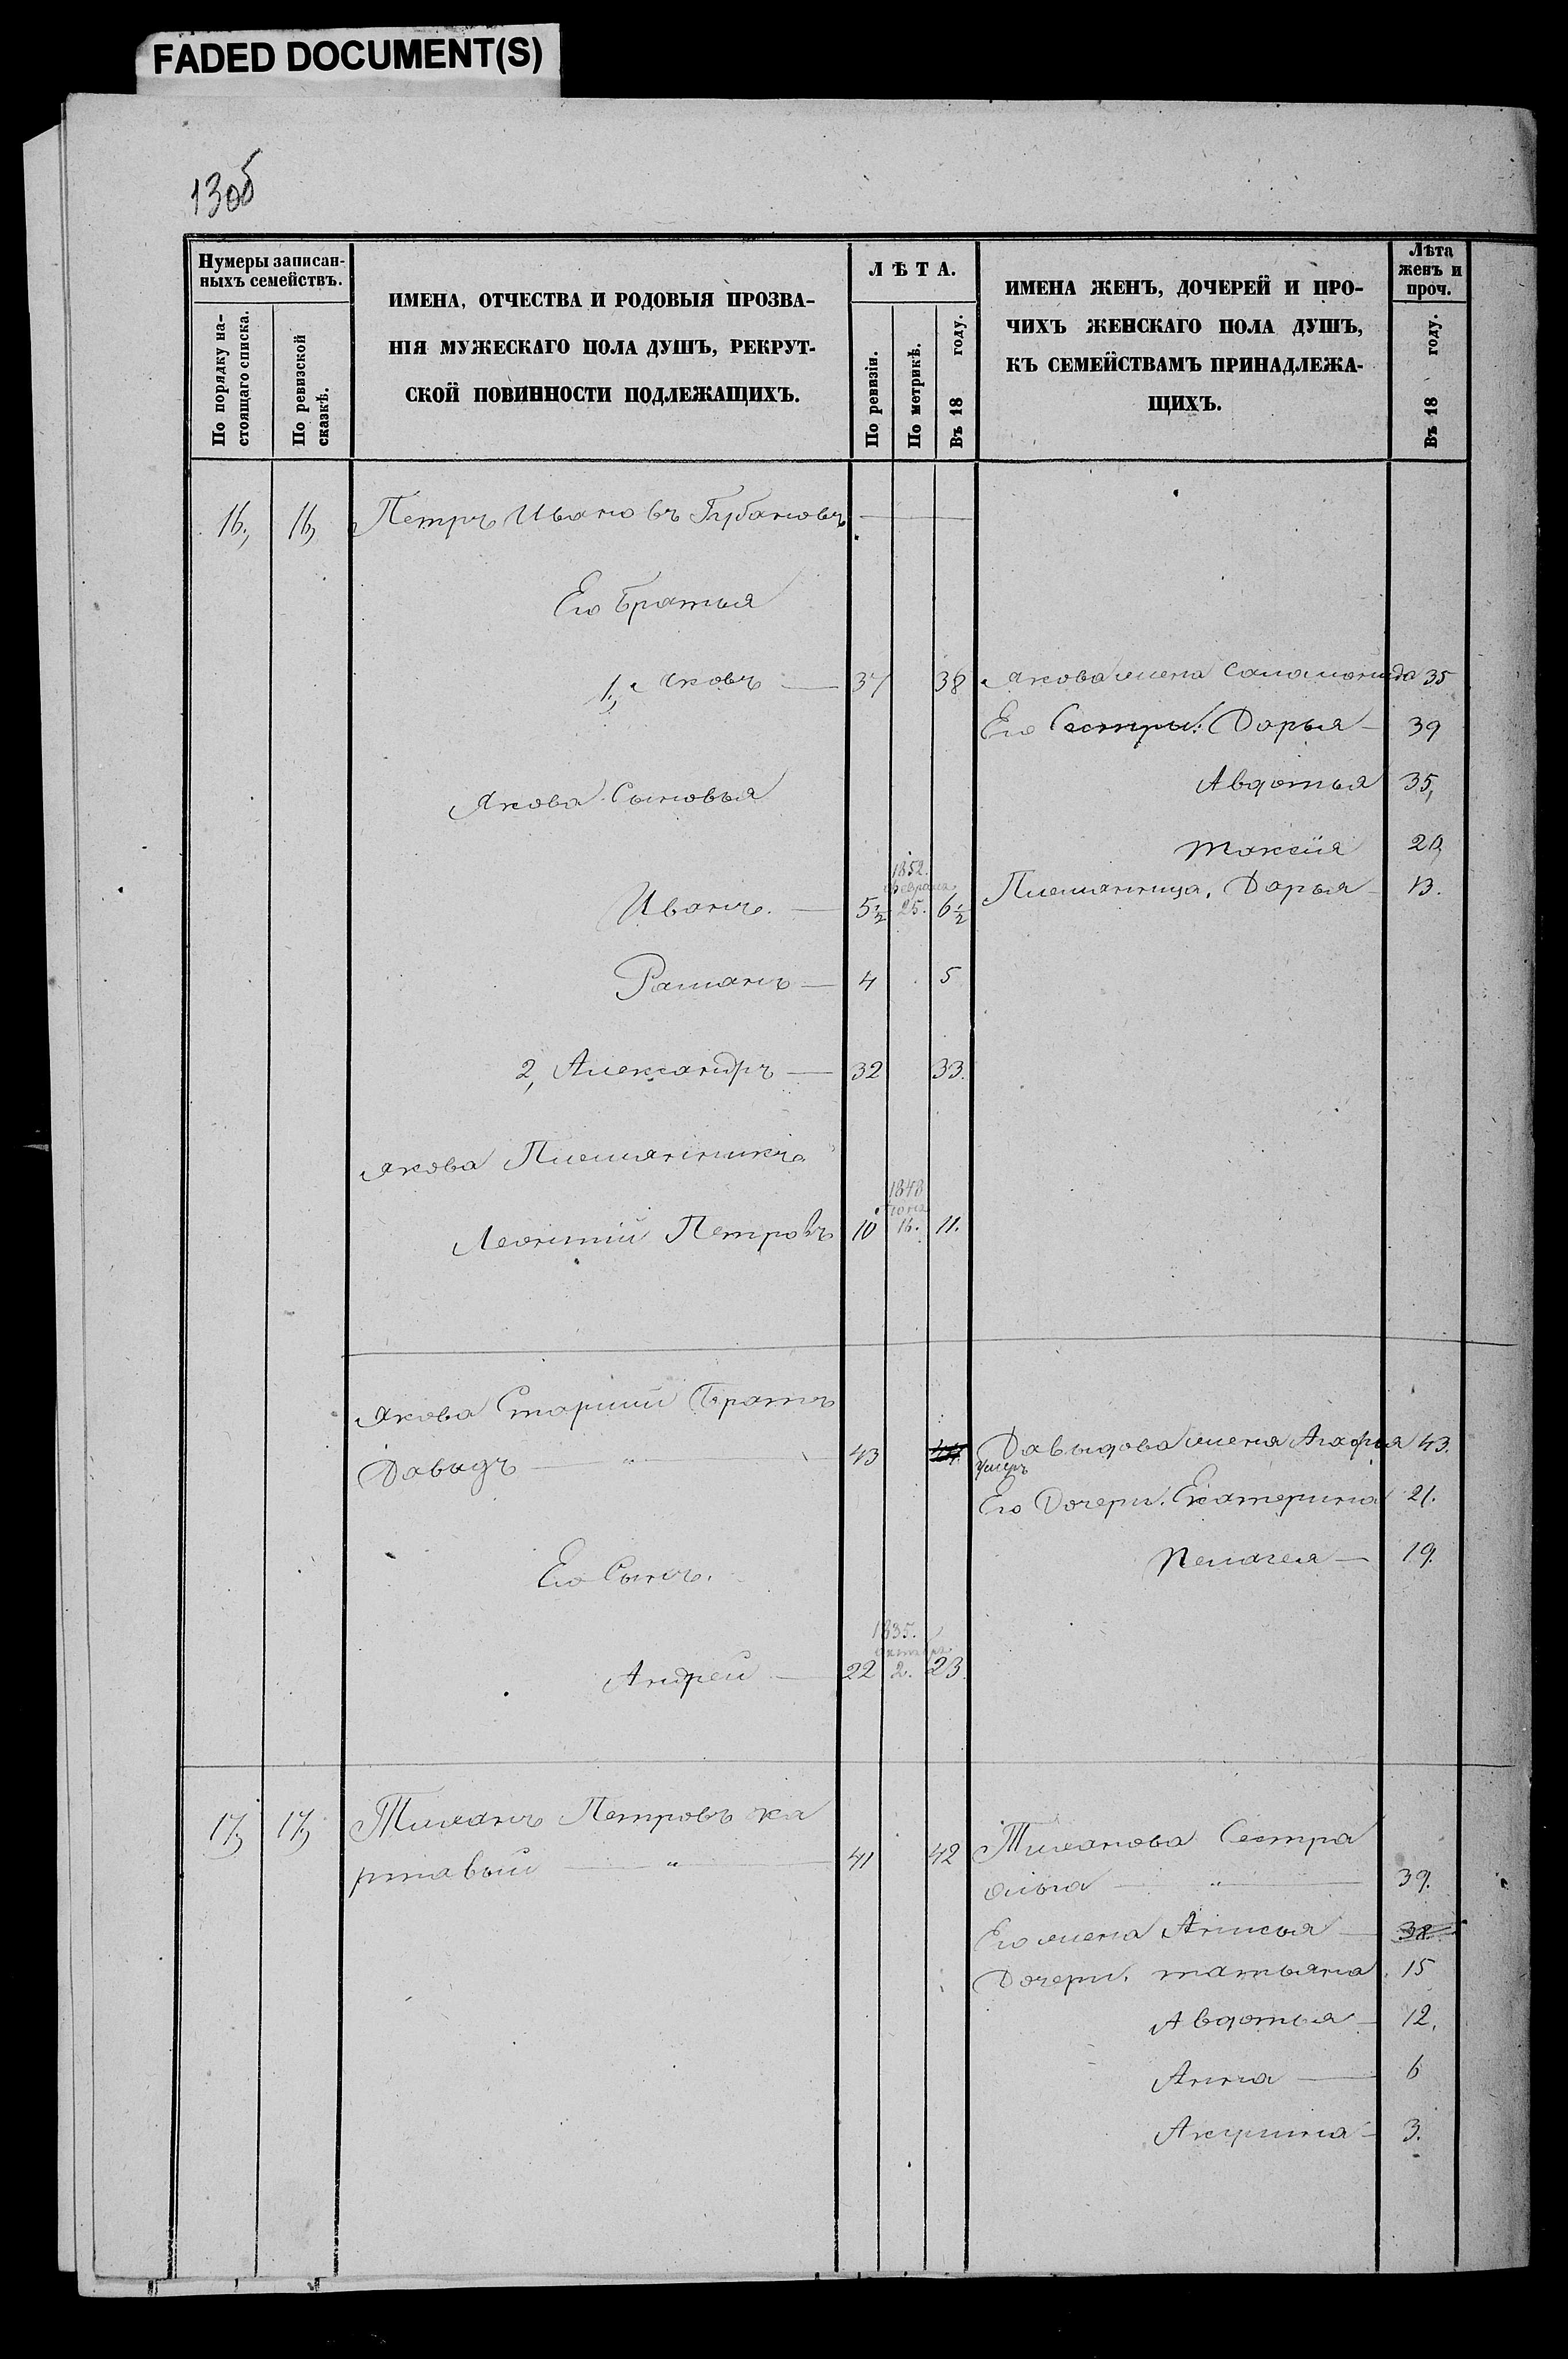 FADED DOCUMENT(S)
130б
Нумеры записан-
ныхъ семействъ.
По порядку на-
стоящаго списка.
По ревизской
сказкѣ.
ИМЕНА, ОТЧЕСТВА И РОДОВЫЯ ПРОЗВА-
НІЯ МУЖЕСКАГО ПОЛА ДУШЪ, РЕКРУТ-
СКОЙ ПОВИННОСТИ ПОДЛЕЖАЩИХЪ.
ЛѢТА.
По ревизіи.
По метрикѣ.
Въ 18 году.
ИМЕНА ЖЕНЪ, ДОЧЕРЕЙ И ПРО-
ЧИХЪ ЖЕНСКАГО ПОЛА ДУШЪ,
КЪ СЕМЕЙСТВАМЪ ПРИНАДЛЕЖА-
ЩИХЪ.
Лѣта
женъ и
проч.
Въ 18 году.
16, 16, Петръ Ивановъ Губановъ —
Его Братья
1, Яковъ — 37 38 Якова жена Саламонида 35
Его Сестры: Дарья — 39
Якова Сыновья
Авдотья 35,
Таисія 20,
1852.
февраля
Иванъ. — 5½ 25. 6½ Племянница, Дарья — 13.
Раманъ — 4 5
2, Александръ — 32 33.
Якова Племянникъ
1848
Іюня
Леонтій Петровъ 10 16. 11.
Якова Старшій Братъ
Давыдъ — " — 43 44 Давыдова жена Агафья 43.
умеръ
Его Дочери. Екатерина 21.
Его Сынъ.
Пелагея — 19.
1835.
октября
Андрей — 22 2. 23.
17, 17, Тиханъ Петровъ Ка
ртавый — " — 41 42 Тиханова Сестра
Ольга — " — 39.
Его жена Анисья — 38.
Дочери. Татьяна. 15
Авдотья — 12.
Анна — 6
Акулина — 3.